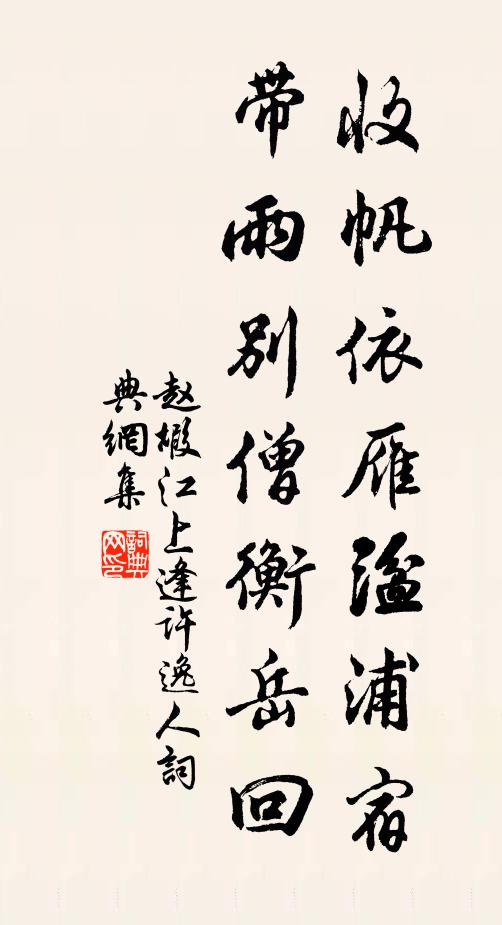 收帆依雁湓浦宿
带雨别僧衡岳回
赵嘏江上逢许逸人詞
典網集
詞典
网印